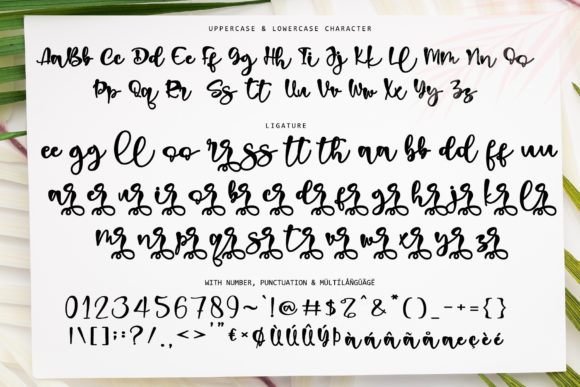 UPPERCASE & LOWERCASE CHARACTER
Aa Bb Cc Dd Ee Ff Gg Hh Ii Jj Kk Ll Mm Nn Oo
Pp Qq Rr Ss Tt Uu Vv Ww Xx Yy Zz
LIGATURE
ee gg ll oo rr ss tt th aa bb dd ff uu
ar er ur ir or br cr dr fr gr hr jr kr lr
mr nr pr qr sr tr vr wr xr yr zr
WITH NUMBER, PUNCTUATION & MÙLTÍLÂÑGÜÃGË
0123456789~`!@#$%^&*()_-+={}
|\[];:?/.,<>'"€×ØÙÚÛÜÝÞàáâãäåæçèé